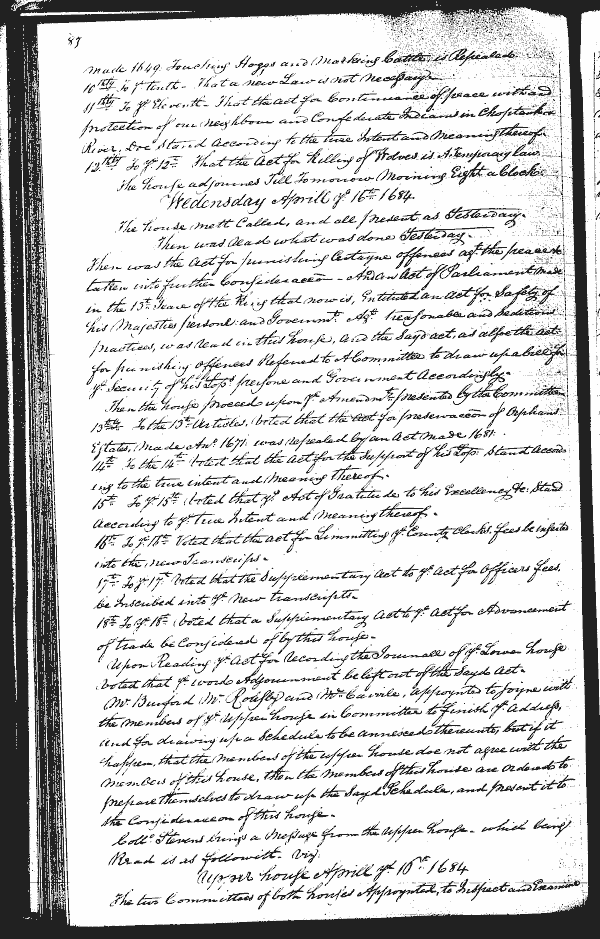 83
made 1649 Touching Hoggs and Marking Cattle, is Repealed
10thly To ye tenth - That a new Law is not necessary
11thly To ye Eleventh That the act for Continuance of peace with and
protection of our neighbour and Confederate Indians in Choptank
River, Doe stand according to the true Intent and Meaning thereof.
12thly To ye 12th That the Act for killing of Wolves is A temporary law
The house adjournes Till Tomorrow Morning Eight a Clock.
Wedensday Aprill ye 16th 1684.
The house mett Called, and all present as Yesterday.
Then was Read what was done Yesterday.
Then was the Act for punishing Certayne offences agt the peace &c
taken into further Consideracon - And an Act of Parliament made
in the 13th Yeare of the King that now is, Entituled an Act for Safety of
his Majesties persone and Governmt. Agt Treasonable and Seditious
practices, was Read in this house, and the Sayd act, as alsoe the act
for punishing offences Referred to A Committee to draw up a bill for
ye Security of his Lopps persone and Government Accordingly.
Then the house proceed upon ye Amendmts presented by the Committee
13th To the 13th Articles, Voted that the Act for preservacon of Orphans
Estates, Made Ano. 1671 was repealed by an Act made 1681.
14th To the 14th Voted that the Act for the Support of his Lopp Stand Accord
ing to the true intent and Meaning thereof.
15th To ye 15th Voted that ye Act of Gratitude to his Excellency &c. Stand
According to ye true Intent and Meaning thereof.
16th To ye 16th Voted that the act for Limmitting ye County Clerks, fees be inserted
into the new Transcripts.
17th To ye 17th Voted that the Supplementary Act to ye Act for Officers fees,
be Inscribed into ye New transcripts.
18th To ye 18th Voted that a Supplementary Act to ye Act for Advancement
of trade be Considered of by this house.
Upon Reading ye Act for Recording the Journall of ye Lower house
Voted that ye word Adjournment be left out of the Sayd Act.
Mr Burford Mr. Rousby and Mr. Carvile, appoynted to joyne with
the members of ye Upper house in Committee to finish ye Address,
and for drawing up a Schedule to be annexed thereunto, but if it
happen, that the members of the upper house doe not agree with the
members of this house, then the members of this house are ordered to
prepare themselves to draw up the Sayd Schedule, and present it to
the Consideracon of this house.
Collo. Stevens brings a Message from the upper house - which being
Read is as followith. Viz.
Upper house Aprill ye 16th 1684
The two Committees of both houses Appoynted, to Inspect and Examine